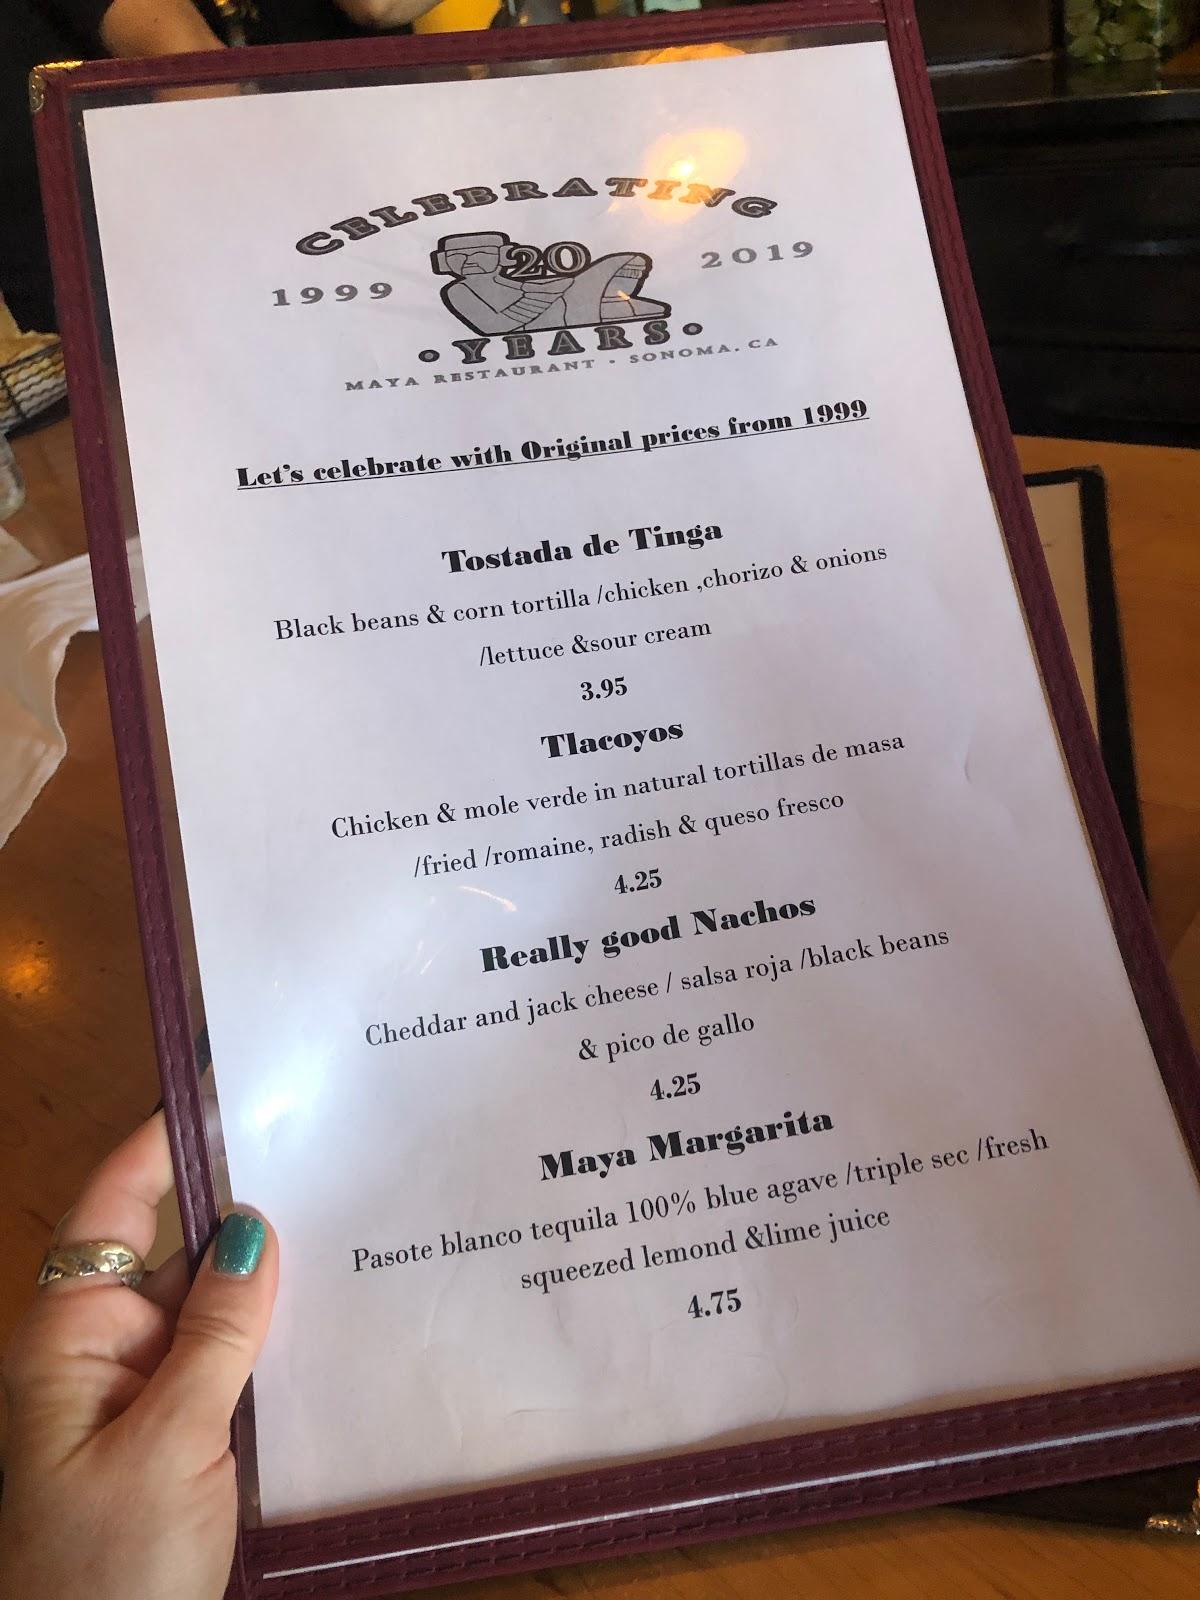 CELEBRATING
1999 20 2019
• YEARS •
MAYA RESTAURANT • SONOMA. CA
Let's celebrate with Original prices from 1999
Tostada de Tinga
Black beans & corn tortilla /chicken ,chorizo & onions
/lettuce &sour cream
3.95
Tlacoyos
Chicken & mole verde in natural tortillas de masa
/fried /romaine, radish & queso fresco
4.25
Really good Nachos
Cheddar and jack cheese / salsa roja /black beans
& pico de gallo
4.25
Maya Margarita
Pasote blanco tequila 100% blue agave /triple sec /fresh
squeezed lemond &lime juice
4.75